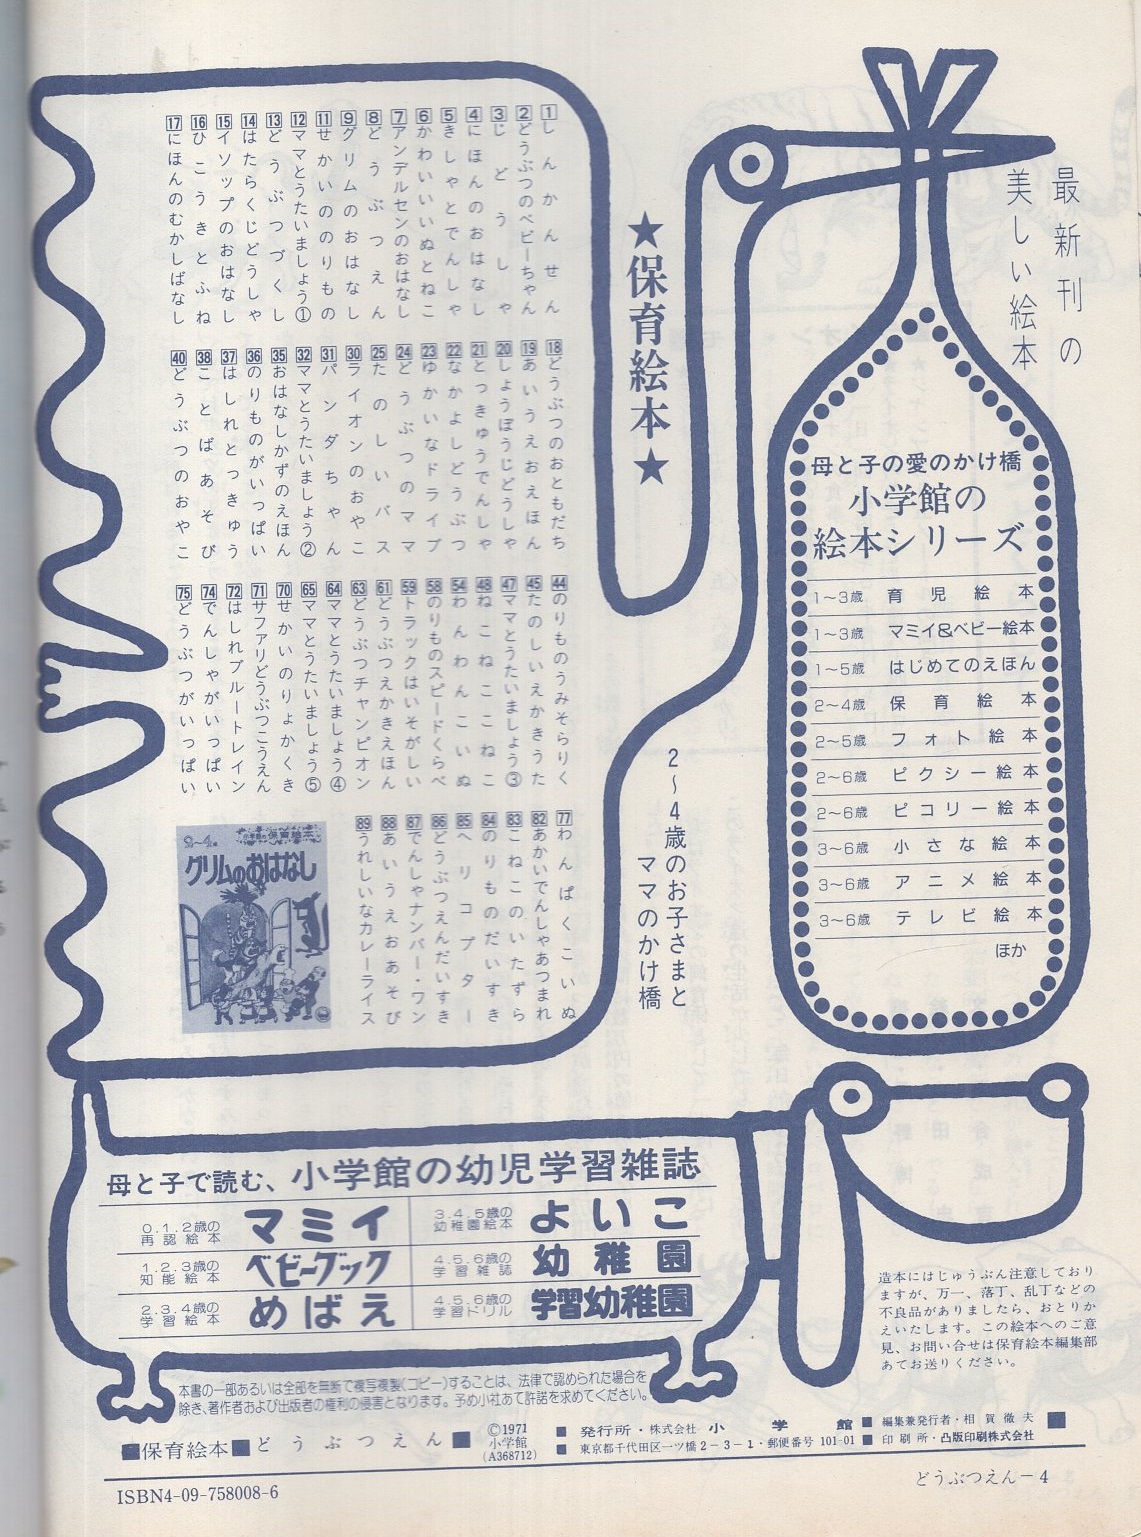 最新刊の
美しい絵本
母と子の愛のかけ橋
小学館の
絵本シリーズ
1～3歳 育児絵本
1～3歳 マミイ&ベビー絵本
1～5歳 はじめてのえほん
2～4歳 保育絵本
2～5歳 フォト絵本
2～6歳 ピクシー絵本
2～6歳 ピコリー絵本
3～6歳 小さな絵本
3～6歳 アニメ絵本
3～6歳 テレビ絵本
ほか
★保育絵本★
2～4歳のお子さまと
ママのかけ橋
1 しんかんせん
2 どうぶつのベビーちゃん
3 じどうしゃ
4 にほんのおはなし
5 きしゃとでんしゃ
6 かわいいいぬとねこ
7 アンデルセンのおはなし
8 どうぶつえん
9 グリムのおはなし
11 せかいののりもの
12 ママとうたいましょう①
13 どうぶつづくし
14 はたらくじどうしゃ
15 イソップのおはなし
16 ひこうきとふね
17 にほんのむかしばなし
18 どうぶつのおともだち
19 あいうえおえほん
20 しょうぼうじどうしゃ
21 とっきゅうでんしゃ
22 なかよしどうぶつ
23 ゆかいなドライブ
24 どうぶつのママ
25 たのしいバス
30 ライオンのおやこ
31 パンダちゃん
32 ママとうたいましょう②
35 おはなしかずのえほん
36 のりものがいっぱい
37 はしれとっきゅう
38 ことばあそび
40 どうぶつのおやこ
44 のりものうみそらりく
45 たのしいえかきうた
47 ママとうたいましょう③
48 ねこねここねこ
54 わんわんこいぬ
58 のりものスピードくらべ
59 トラックはいそがしい
61 どうぶつえかきえほん
63 どうぶつチャンピオン
64 ママとうたいましょう④
65 ママとうたいましょう⑤
70 せかいのりょかくき
71 サファリどうぶつこうえん
72 はしれブルートレイン
74 でんしゃがいっぱい
75 どうぶつがいっぱい
77 わんぱくこいぬ
82 あかいでんしゃあつまれ
83 こねこのいたずら
84 のりものだいすき
85 ヘリコプター
86 どうぶつえんだいすき
87 でんしゃナンバー・ワン
88 あいうえおあそび
89 うれしいなカレーライス
2～4歳 小学館の保育絵本
グリムのおはなし
母と子で読む、小学館の幼児学習雑誌
0.1.2歳の再認絵本 マミイ
3.4.5歳の幼稚園絵本 よいこ
1.2.3歳の知能絵本 ベビーブック
4.5.6歳の学習雑誌 幼稚園
2.3.4歳の学習絵本 めばえ
4.5.6歳の学習ドリル 学習幼稚園
造本にはじゅうぶん注意しており
ますが、万一、落丁、乱丁などの
不良品がありましたら、おとりか
えいたします。この絵本へのご意
見、お問い合せは保育絵本編集部
あてお送りください。
本書の一部あるいは全部を無断で複写複製(コピー)することは、法律で認められた場合を
除き、著作者および出版者の権利の侵害となります。予め小社あて許諾を求めてください。
■保育絵本■どうぶつえん■
©1971
小学館
(A368712)
■ 発行所・株式会社 小学館 ■ 編集兼発行者・相賀徹夫 ■
■ 東京都千代田区一ツ橋2-3-1・郵便番号 101-01 ■ 印刷所・凸版印刷株式会社
どうぶつえん－4
ISBN4-09-758008-6